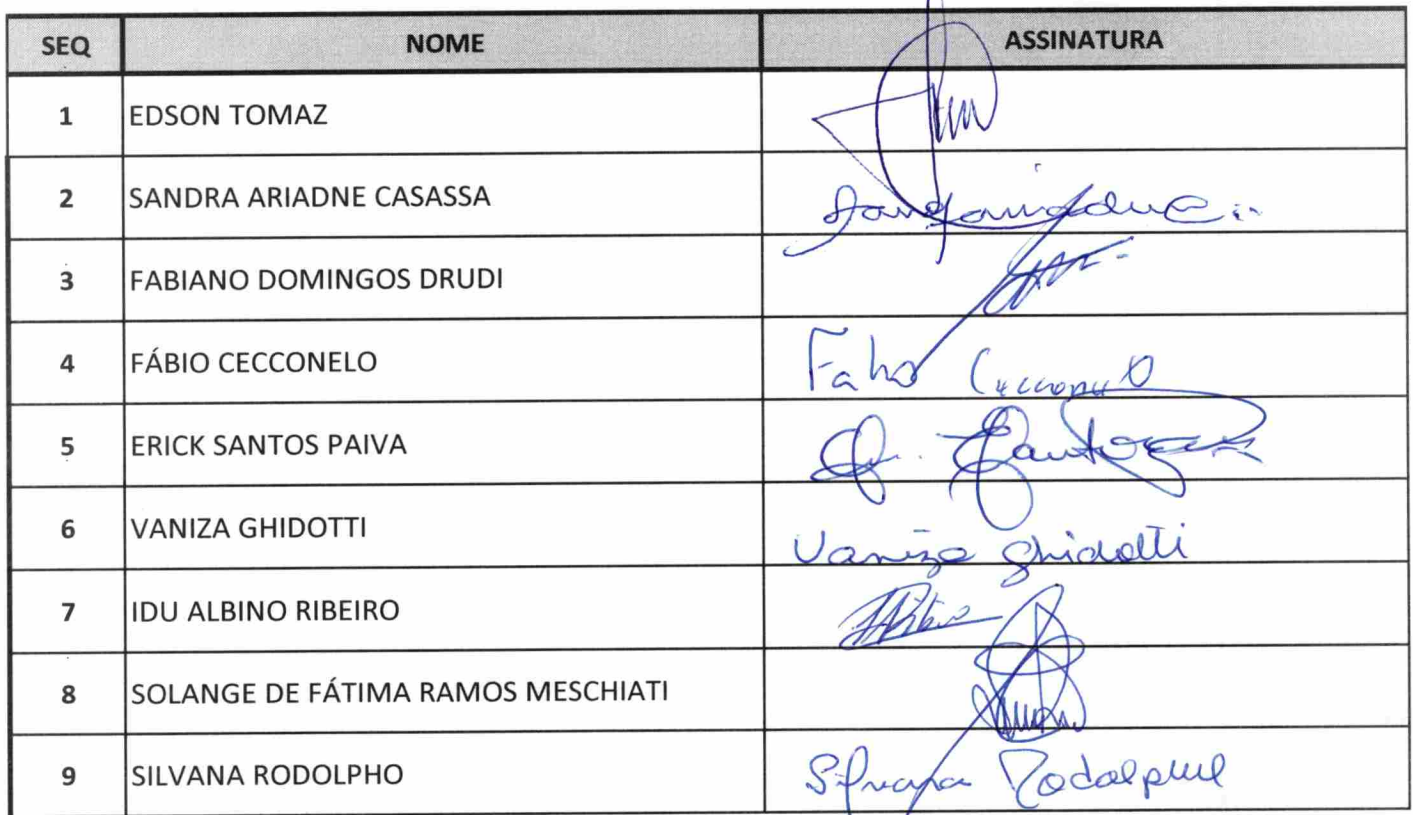 SEQ NOME ASSINATURA
1 EDSON TOMAZ
2 SANDRA ARIADNE CASASSA
3 FABIANO DOMINGOS DRUDI
4 FÁBIO CECCONELO
5 ERICK SANTOS PAIVA
6 VANIZA GHIDOTTI Vaniza Ghidotti
7 IDU ALBINO RIBEIRO
8 SOLANGE DE FÁTIMA RAMOS MESCHIATI
9 SILVANA RODOLPHO Silvana Rodolpho